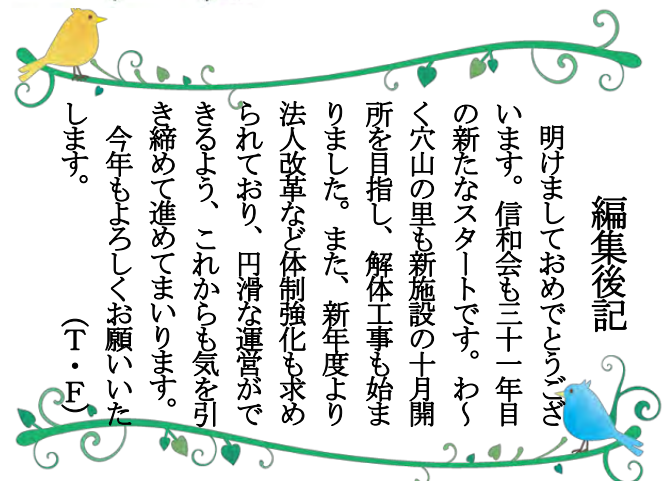 編集後記
明けましておめでとうござ
います。信和会も三十一年目
の新たなスタートです。わ～
く穴山の里も新施設の十月開
所を目指し、解体工事も始ま
りました。また、新年度より
法人改革など体制強化も求め
られており、円滑な運営がで
きるよう、これからも気を引
き締めて進めてまいります。
今年もよろしくお願いいた
します。
（Ｔ・Ｆ）